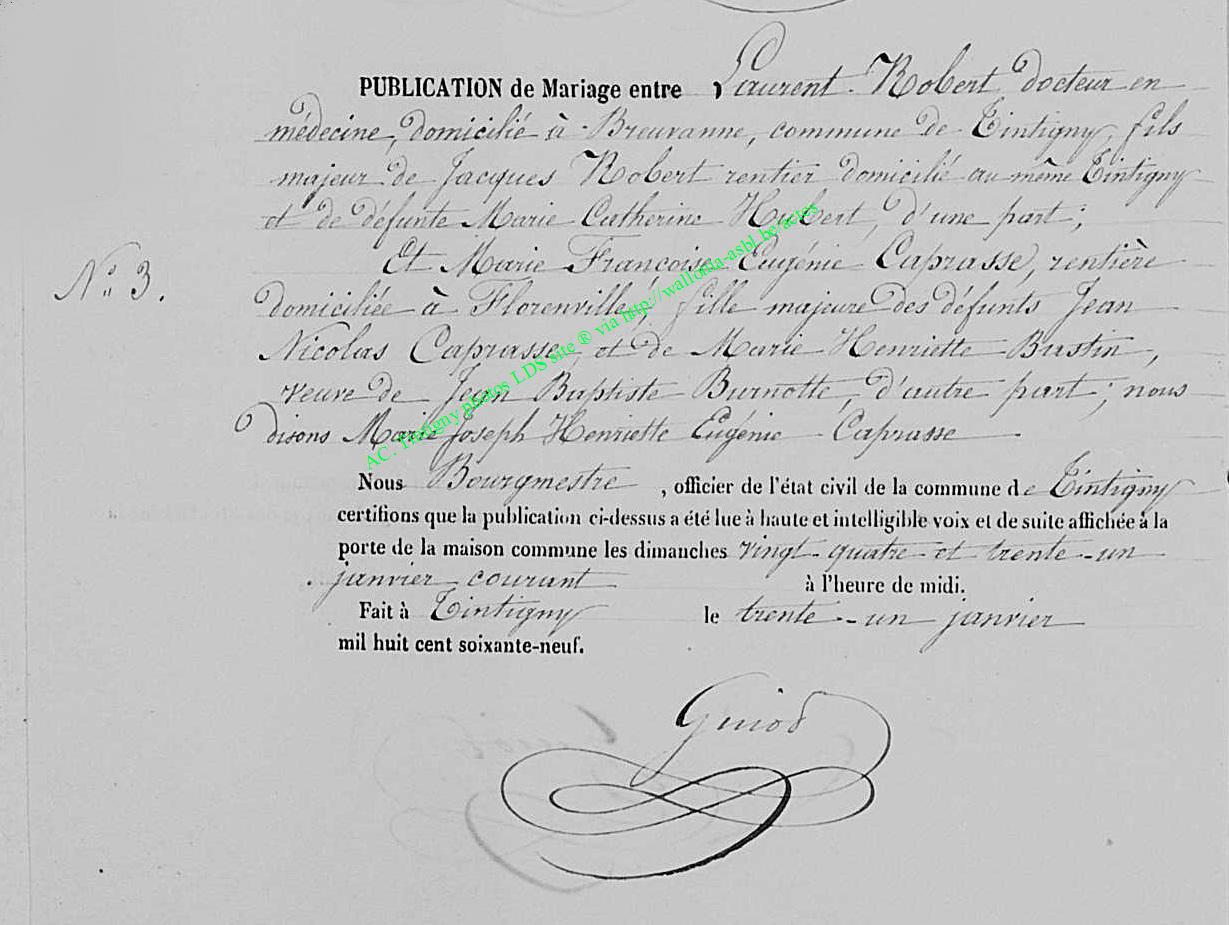 PUBLICATION de Mariage entre Laurent Robert docteur en
médecine, domicilié à Breuvanne, commune de Tintigny, fils
majeur de Jacques Robert rentier domicilié au même Tintigny
et de défunte Marie Catherine Hubert, d'une part;
Et Marie Françoise Eugénie Caprasse, rentière
N° 3.
domiciliée à Florenville, fille majeure des défunts Jean
Nicolas Caprasse, et de Marie Henriette Bustin,
veuve de Jean Baptiste Burnotte, d'autre part; nous
disons Marie Joseph Henriette Eugénie Caprasse
Nous Bourgmestre, officier de l'état civil de la commune de Tintigny
certifions que la publication ci-dessus a été lue à haute et intelligible voix et de suite affichée à la
porte de la maison commune les dimanches vingt-quatre et trente-un
janvier courant à l'heure de midi.
Fait à Tintigny le trente-un janvier
mil huit cent soixante-neuf.
Guiod
AC. Tintigny photos LDS site ® via http://wallonia-asbl.be/actes